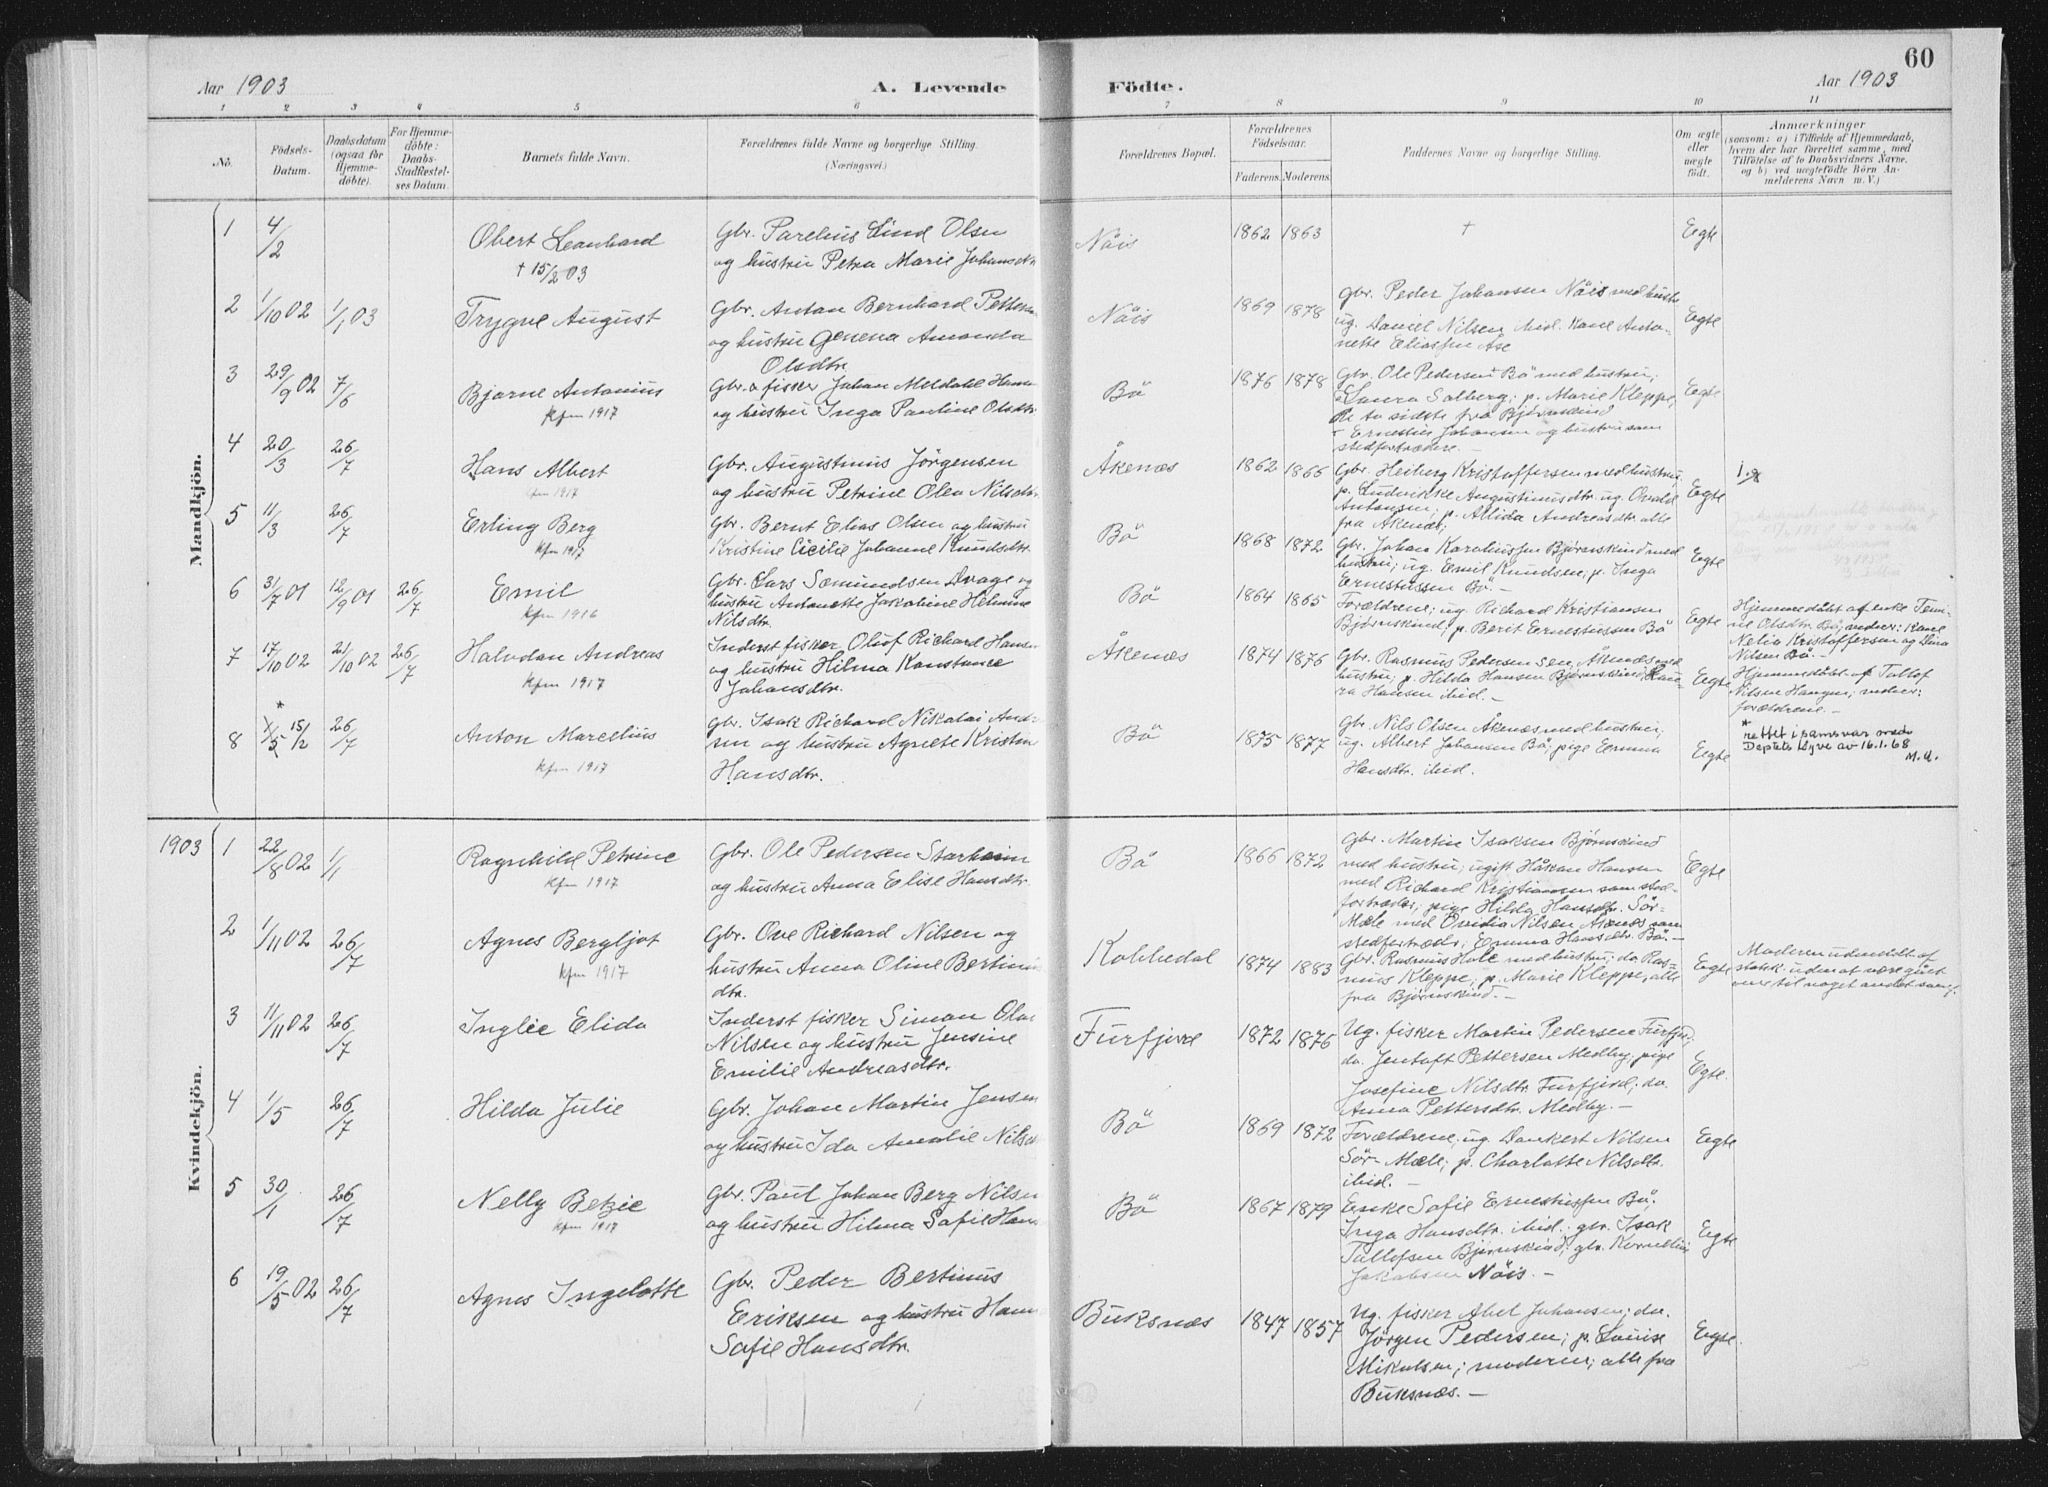 60
Aar 1903
A. Levende
Födte.
Aar 1903
1 2 3 4 5 6 7 8 9 10 11
No.
Födsels-Datum.
Daabsdatum (ogsaa for Hjemme-döbte).
For Hjemme-döbte: Daabs-Stadfæstel-ses Datum
Barnets fulde Navn.
Forældrenes fulde Navne og borgerlige Stilling.
(Næringsvei.)
Forældrenes Bopæl.
Forældrenes Födselsaar.
Faderens. Moderens.
Faddernes Navne og borgerlige Stilling.
Om ægte eller uægte födt.
Anmærkninger
(saasom: a) i Tilfælde af Hjemmedaab,
hvem der har forrettet samme, med
Tilföielse af to Daabsvidners Navne.
og b) ved uægtefödte Börn An-
melderens Navn m. V.)
Mandkjön.
1 4/2 Obert Leonhard
+ 15/2 03
Gbr. Parelius Lind Olsen
og hustru Petra Marie Johansdtr
Nöis 1862 1863 + Egte
2 1/10 02 1/1 03 Trygve August
Gbr. Anton Bernhard Petters
og hustru Genena Amanda
Olsdtr.
Nöis 1869 1878
Gbr. Peder Johansen Nöis med hustr
ug. Daniel Nilsen ibid. Kone Anto-
nette Eliassen Åse
Egte
3 29/9 02 7/6 Bjarne Antonius
kfm 1917
Gbr. & fisker Johan Meldahl Hans
og hustru Inga Pauline Olsdtr
Bö 1876 1878
Gbr. Ole Pedersen Bö med hustru;
Laura Solberg; p. Marie Kleppe,
De to sidste fra Björnskind
Ernestin Johansen og hustru som
stedfortrædere.
Egte
4 20/3 26/7 Hans Albert
kfm 1917
Gbr. Augustinus Jörgensen
og hustru Petrine Olea Nilsdtr.
Åkenæs 1862 1866
Gbr. Heiberg Kristoffersen med hustru
p. Ludvikke Augustinusdtr. ug. Ovald
Antonsen; p. Alida Andreasdtr. alle
fra Åkenæs;
Egte
5 11/3 26/7 Erling Berg
kfm 1917
Gbr. Bernt Elias Olsen og hustru
Kristine Cicilie Johanne Knudsdtr.
Bö 1868 1872
Gbr. Johan Karoliussen Björnskind med
hustru; ug. Emil Knudsen; p. Inga
Ernestussen Bö. -
Egte
6 31/7 01 12/9 01 26/7 Emil
kfm 1916
Gbr. Lars Sæmundsen Drage og
hustru Antonette Jakobine Helmine
Nilsdtr.
Bö 1864 1865
Forældrene; ug. Richard Kristiansen
Björnskind, p. Berit Ernestussen Bö
Egte
Hjemmedöbt af enke Tomi-
ne Olsdtr. Bö, vidner: Kone
Nelia Kristoffersen og Dina
Nilsen Bö. -
7 17/10 02 21/10 02 26/7 Halvdan Andreas
kfm 1917
Inderst fisker Oluf Richard Hansen
og hustru Hilma Konstance
Johansdtr.
Åkenæs 1874 1876
Gbr. Rasmus Pedersen sen. Åkenæs med
hustru; p. Hilda Hansen Björnskind; Lau-
ra Hansen ibid. -
Egte
Hjemmedöbt af Tollof
Nilsen Haugen; vidner:
forældrene. -
8 1/5 * 15/2 26/7 Anton Marcelius
kfm 1917
Gbr. Isak Richard Nikolai Andr
sen og hustru Agnete Kristine
Hansdtr.
Bö 1875 1877
Gbr. Nils Olsen Åkenæs med hustru;
ug. Albert Johansen Bö; pige Emma
Hansdtr. ibid.
Egte
*
rettet i samsvar med
Deptets skrive av 16.1.68
M.U.
1903
Kvindekjön.
1 22/8 02 1/1 Ragnhild Petrine
kfm 1917
Gbr. Ole Pedersen Starheim
og hustru Anna Elise Hansdtr.
Bö 1866 1872
Gbr. Martin Isaksen Björnskind
med hustru; ugift Håkon Hansen
med Richard Kristiansen som sted-
fortræder; pige Hilda Hansdtr. Sör-
Mæle med Ovidia Nilsen Åkenæs som
stedfortræder; Emma Hansdtr. Bö. -
Egte
2 1/11 02 26/7 Agnes Bergljot
kfm 1917
Gbr. Ove Richard Nilsen og
hustru Anna Oline Bertinus
dtr.
Kobbedal 1874 1883
Gbr. Rasmus Hole med hustru; do Ras-
mus Kleppe, p. Marie Kleppe, alle
fra Björnskind. -
Egte
Moderen udmeldt af
statsk. uden at være gået
over til noget andet samf.
3 11/11 02 26/7 Inglie Elida
Inderst fisker Simon Olai
Nilsen og hustru Jensine
Emilie Andreasdtr.
Furfjord 1872 1876
Ug. fisker Martin Pedersen Furfjord;
do. Jentoft Pettersen Medby; pige
Josefine Nilsdtr Furfjord; do
Anna Pettersdtr. Medby. -
Egte.
4 1/5 26/7 Hilda Julie
Gbr. Johan Martin Jensen
og hustru Ida Amalie Nilsd
Bö 1869 1872
Forældrene, ug. Dankert Nilsen
Sör-Mæle; p. Charlotte Nilsdtr.
ibid. -
Egte
5 30/1 26/7 Nelly Betzie
kfm 1917
Gbr. Paul Johan Berg Nilsen
og hustru Hilma Sofie Hans
Bö 1867 1879
Enke Sofie Ernestussen Bö;
Inga Hansdtr. ibid.; gbr. Isak
Tollofsen Björnskind; gbr. Kornelius
Jakobsen Nöis. -
Egte
6 19/5 02 26/7 Agnes Ingelotte
Gbr. Peder Bertinus
Eriksen og hustru Hann
Sofie Hansdtr.
Buksnæs 1847 1857
Ug. fisker Abel Johansen; do.
Jörgen Pedersen; p. Lovise
Mikalsen; moderen; alle fra
Buksnæs. -
Egte.